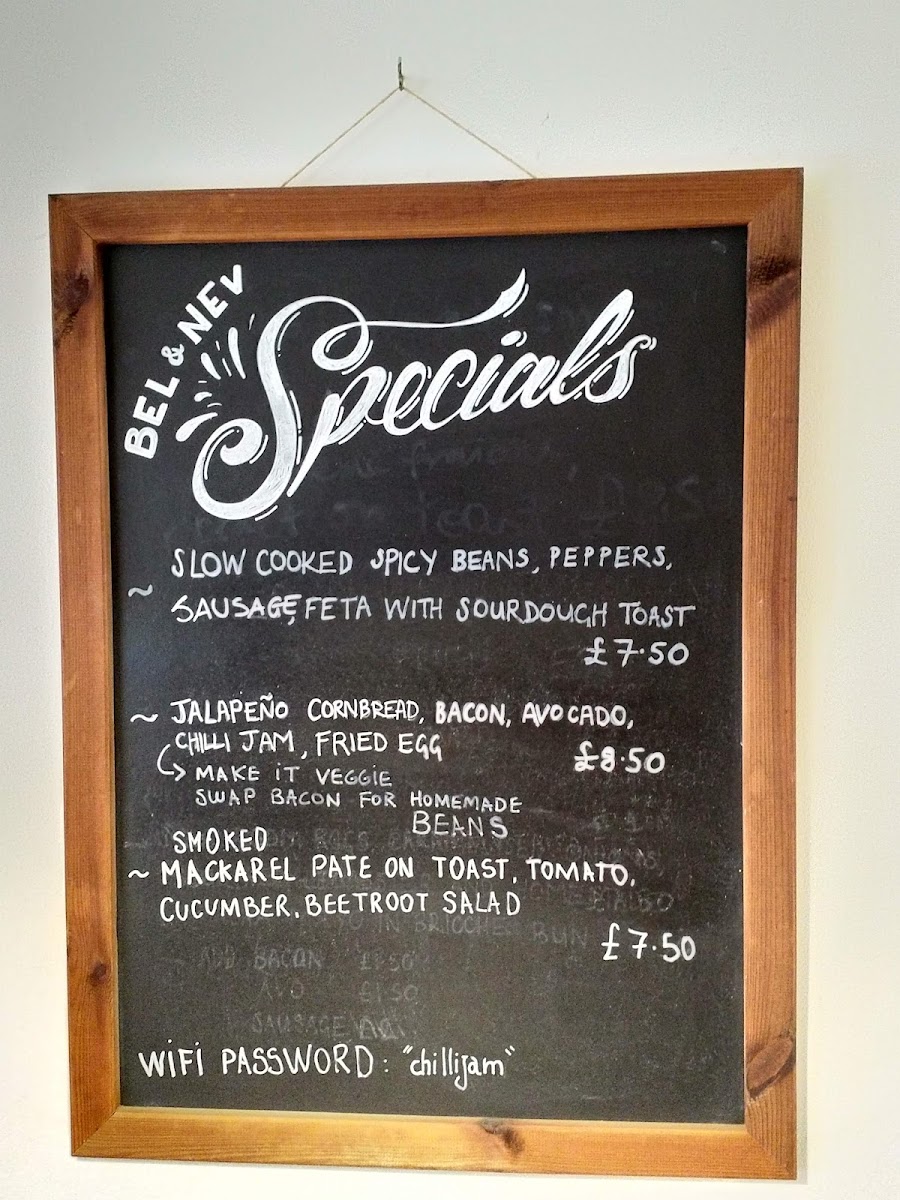 BEL & NEV
Specials
~ SLOW COOKED SPICY BEANS, PEPPERS,
SAUSAGE, FETA WITH SOURDOUGH TOAST
£7.50
~ JALAPEÑO CORNBREAD, BACON, AVOCADO,
CHILLI JAM, FRIED EGG £8.50
MAKE IT VEGGIE
SWAP BACON FOR HOMEMADE
BEANS
SMOKED
~ MACKAREL PATE ON TOAST, TOMATO,
CUCUMBER, BEETROOT SALAD
£7.50
BACON
AVO £1.50
SAUSAGE
WIFI PASSWORD: "chillijam"